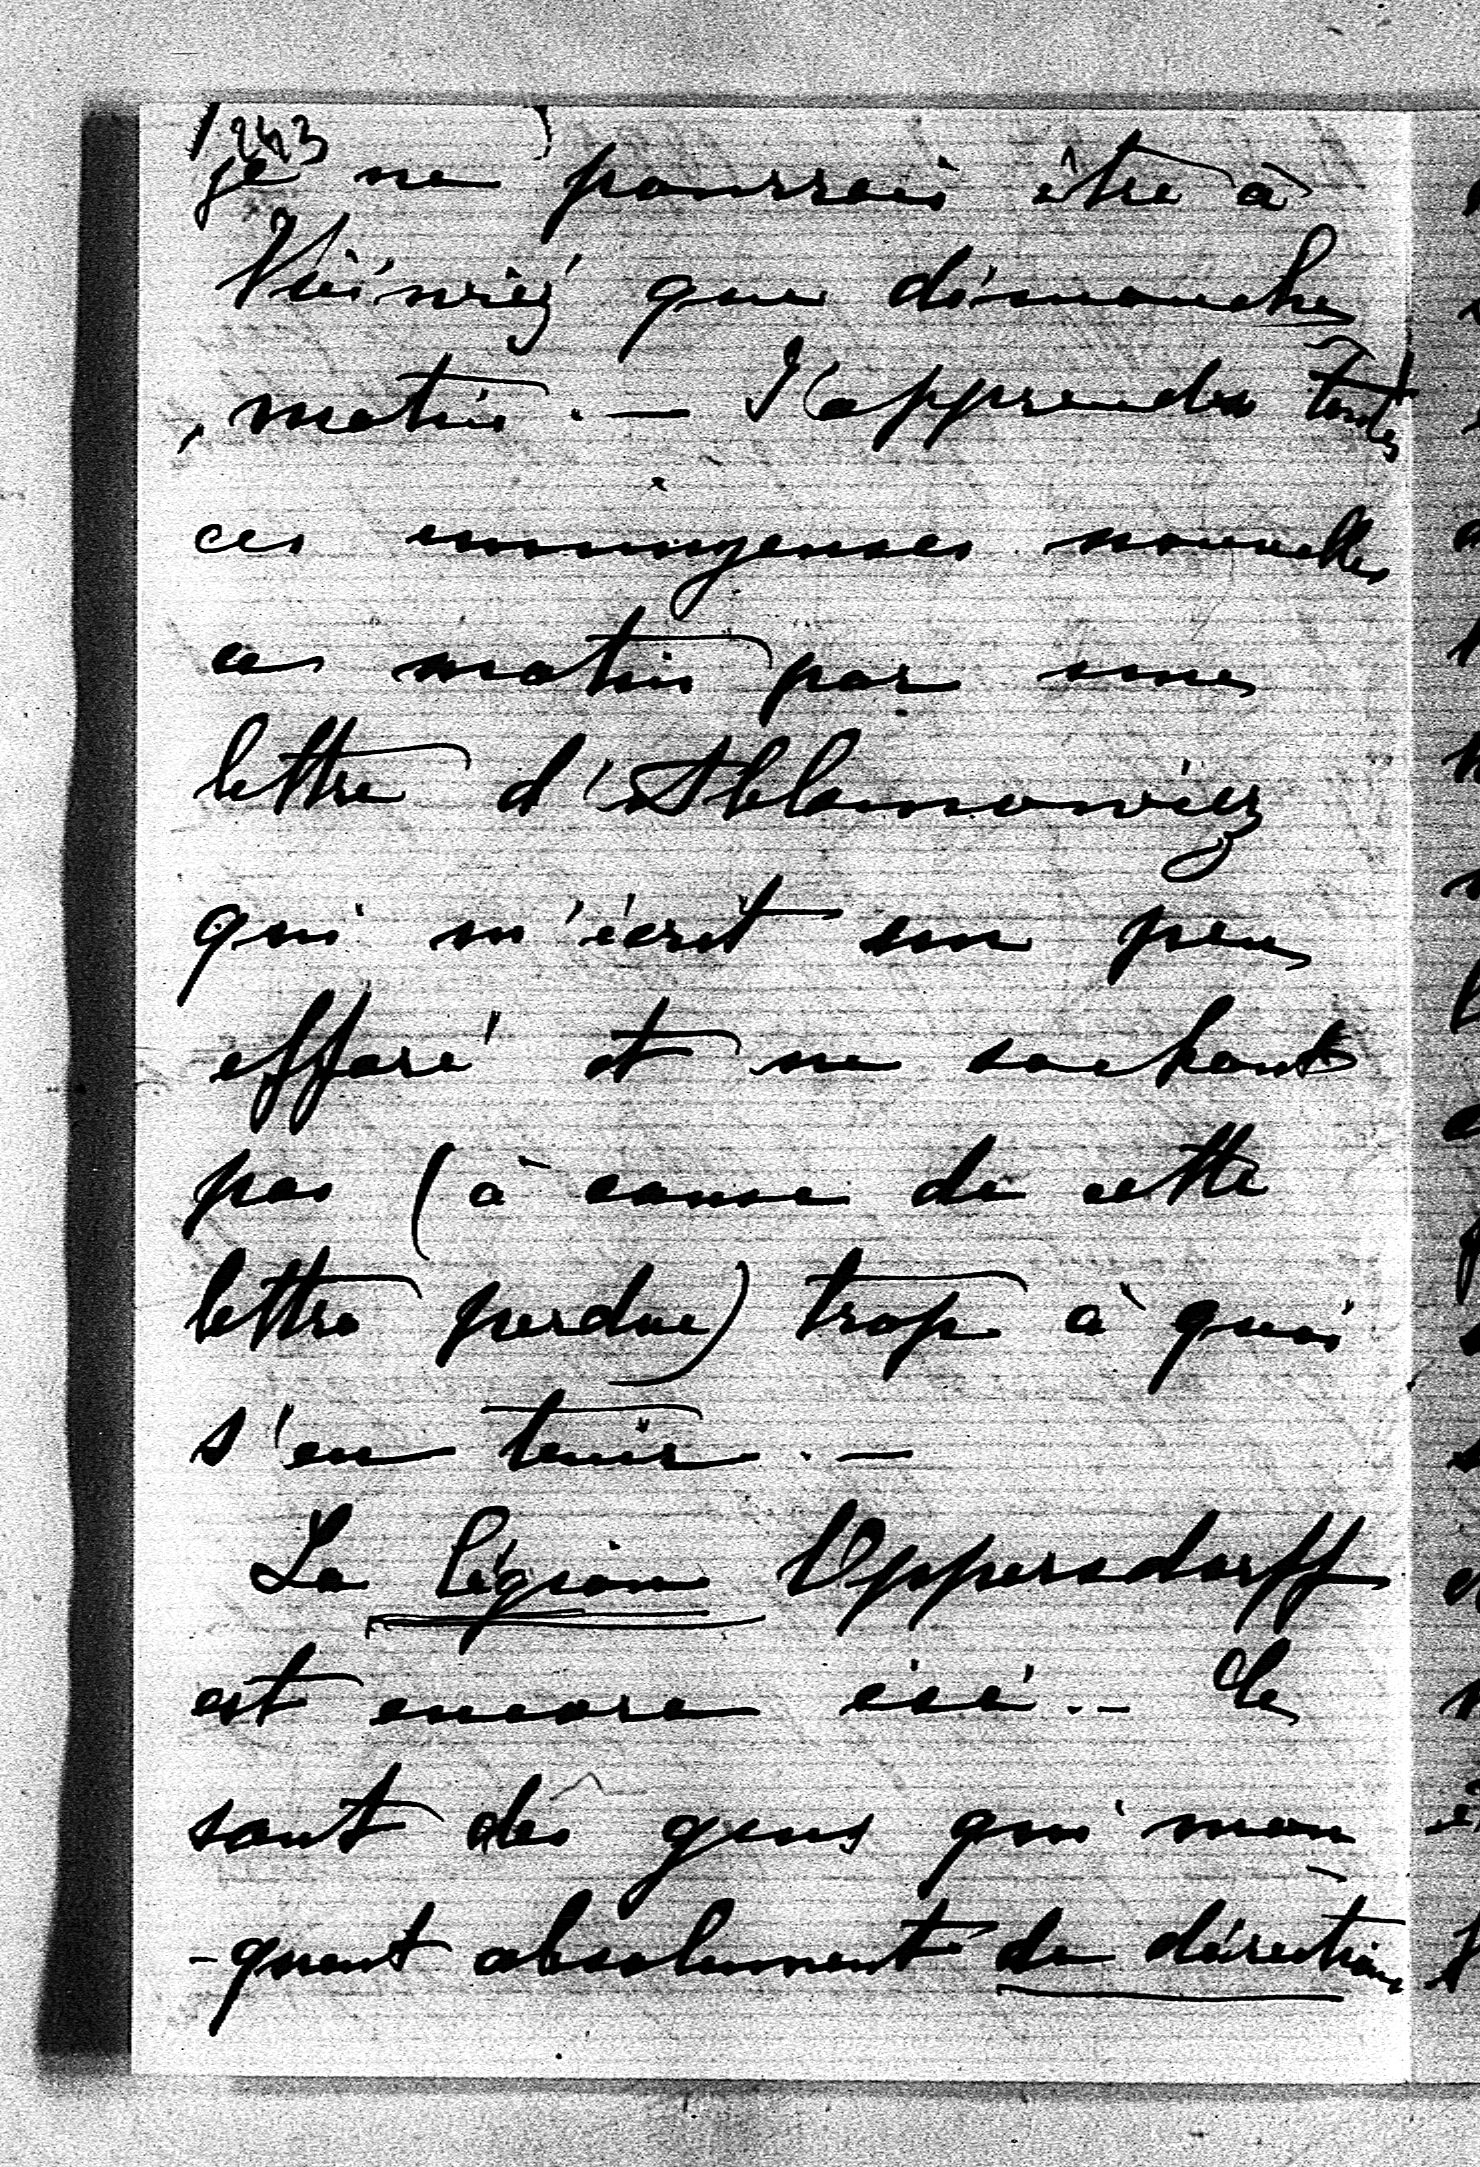 243
je ne pourrais être à
que dimanche
matin. — J'apprends toutes
ces ennuyeuses nouvelles
ce matin par une
lettre d'Ablamowicz
qui m'écrit un peu
effaré et ne sachant
pas (à cause de cette
lettre perdue) trop à quoi
s'en tenir. —
La Légion Oppersdorff
est encore ici. — Ce
sont des gens qui man
-quent absolument de direction